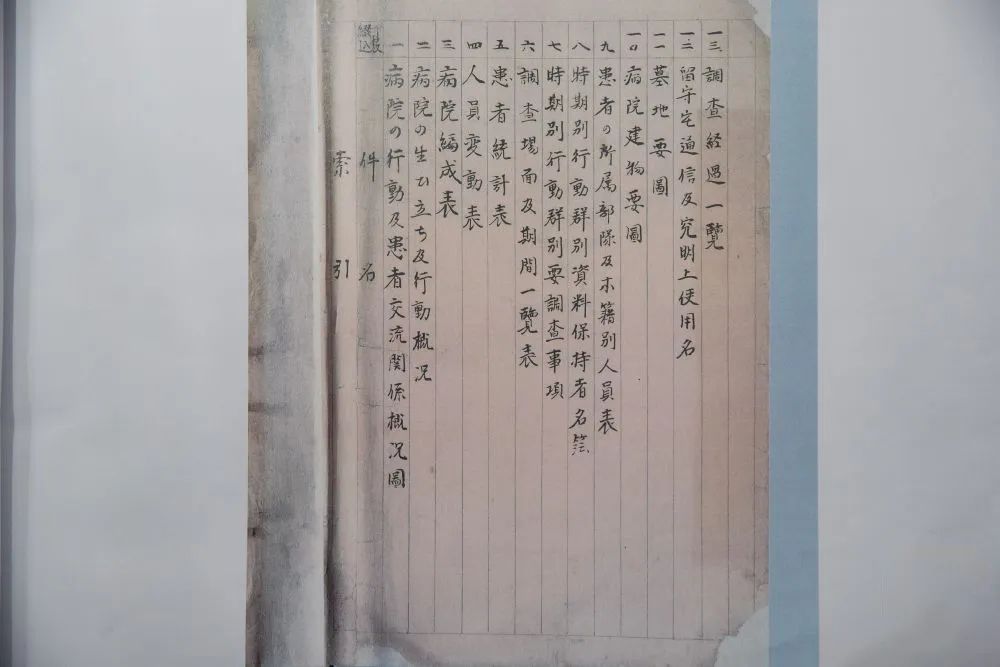 索引
件名
一 病院の行動及患者交流関係概況圖
二 病院の生ひ立ち及行動概況
三 病院編成表
四 人員変動表
五 患者統計表
六 調查場面及期間一覽表
七 時期別行動群別要調查事項
八 時期別行動群別資料保持者名簿
九 患者の所属部隊及本籍別人員表
一〇 病院建物要圖
一一 墓地要圖
一二 留守宅通信及究明上使用名
一三 調查経過一覽